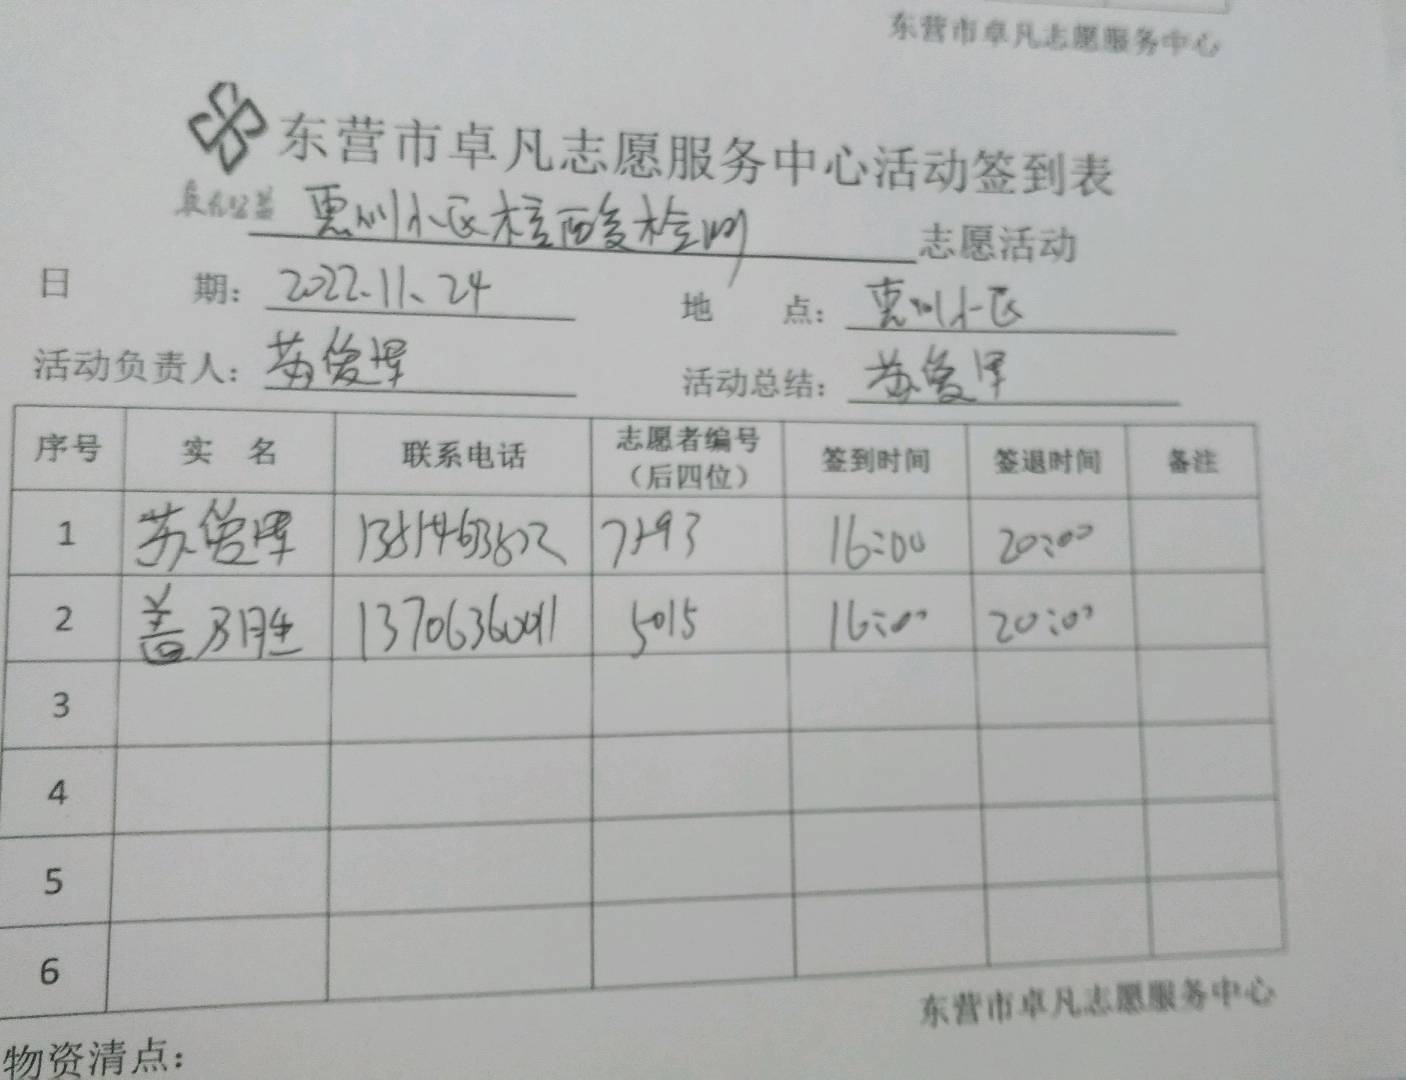 东营市卓凡志愿服务中心
东营市卓凡志愿服务中心活动签到表
卓凡公益 惠州小区核酸检测 志愿活动
日 期: 2022.11.24 地 点: 惠州小区
活动负责人: 苏俊峰 活动总结: 苏俊峰
序号 实 名 联系电话 志愿者编号（后四位） 签到时间 签退时间 备注
1 苏俊峰 7293 16:00 20:00
2 盖乃胜 13706360091 5015 16:00 20:00
3
4
5
6
东营市卓凡志愿服务中心
物资清点: